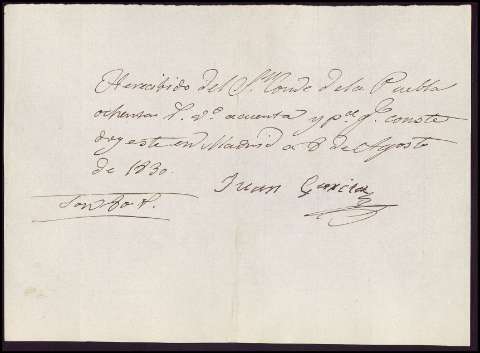 He recibido del Sr. Conde de la Puebla
ochenta rs. vn. a cuenta y pa. qe. conste
doy este en Madrid a 8 de Agosto
de 1830.
Juan Garcia
Son 80 rs.